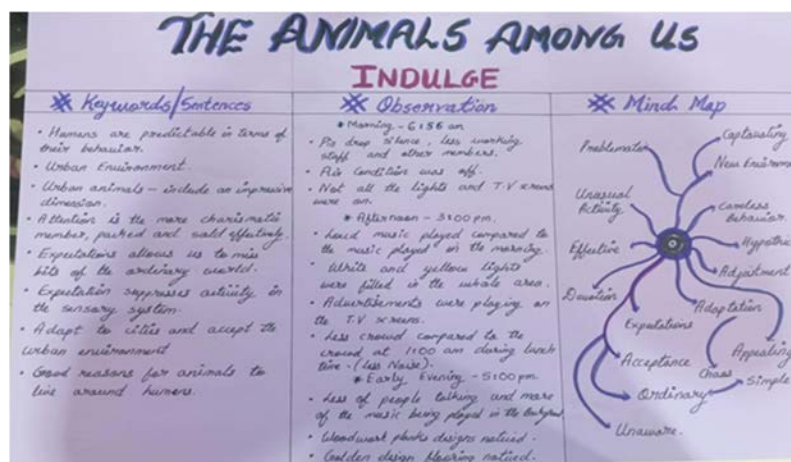 THE ANIMALS AMONG US
INDULGE
Keywords/Sentences
• Humans are predictable in terms of
their behavior.
• Urban Environment.
• Urban animals - include an impressive
dimension.
• Attention is the more charismatic
member, packed and sold effectively.
• Expectations allows us to miss
bits of the ordinary world.
• Expectation suppresses activity in
the sensory system.
• Adapt to cities and accept the
urban environment
• Good reasons for animals to
live around humans.
Observation
* Morning - 6:56 am
• Pin drop silence, less working
staff and other members.
• Air Condition was off.
• Not all the lights and T.V screens
were on.
* Afternoon - 3:00 pm.
• Loud music played compared to
the music played in the morning.
• White and yellow lights
were filled in the whole area.
• Advertisements were playing on
the T.V screens.
• Less crowd compared to the
crowd at 1:00 am during lunch
time. (less Noise).
* Early Evening - 5:00 pm
• Less of people talking and more
of the music being played in the
• Woodwork planks designs noticed.
• Golden design flooring noticed.
Mind Map
Problematic
Captivating
New Environm
Unusual
Activity
Careless
Behavior.
Effective
Adjustment
Devotion
Adaptation
Expectations
Appealing
Acceptance
Chaos
Simple
Ordinary
Unaware.